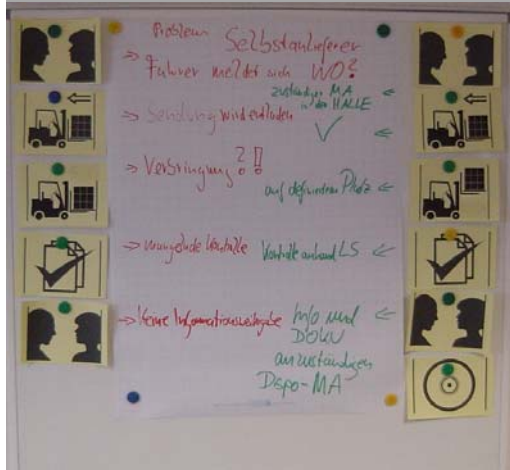 Problem Selbstanlieferer
→ Fahrer meldet sich WO?
zuständiger MA ←
in der HALLE
→ Sendung wird entladen
✓ ←
→ Verbringung ?!
auf definierten Platz ←
→ mangelnde Kontrolle Kontrolle anhand LS ←
→ Keine Informationsweitergabe Info und ←
DOKU
an zuständigen
Dispo-MA